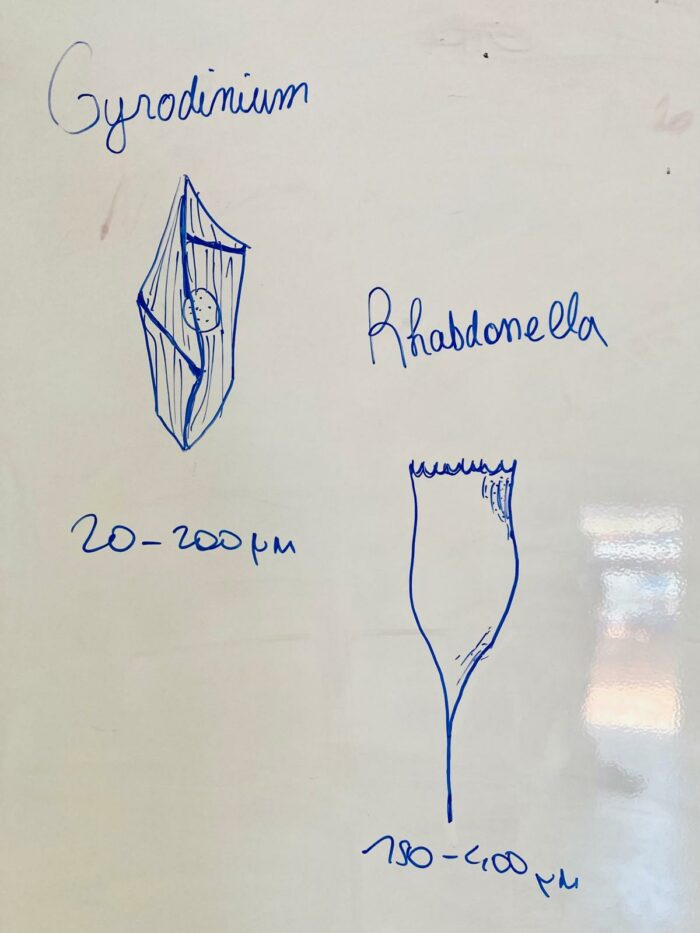 Gyrodinium
Rhabdonella
20-200 µm
190-400 µm